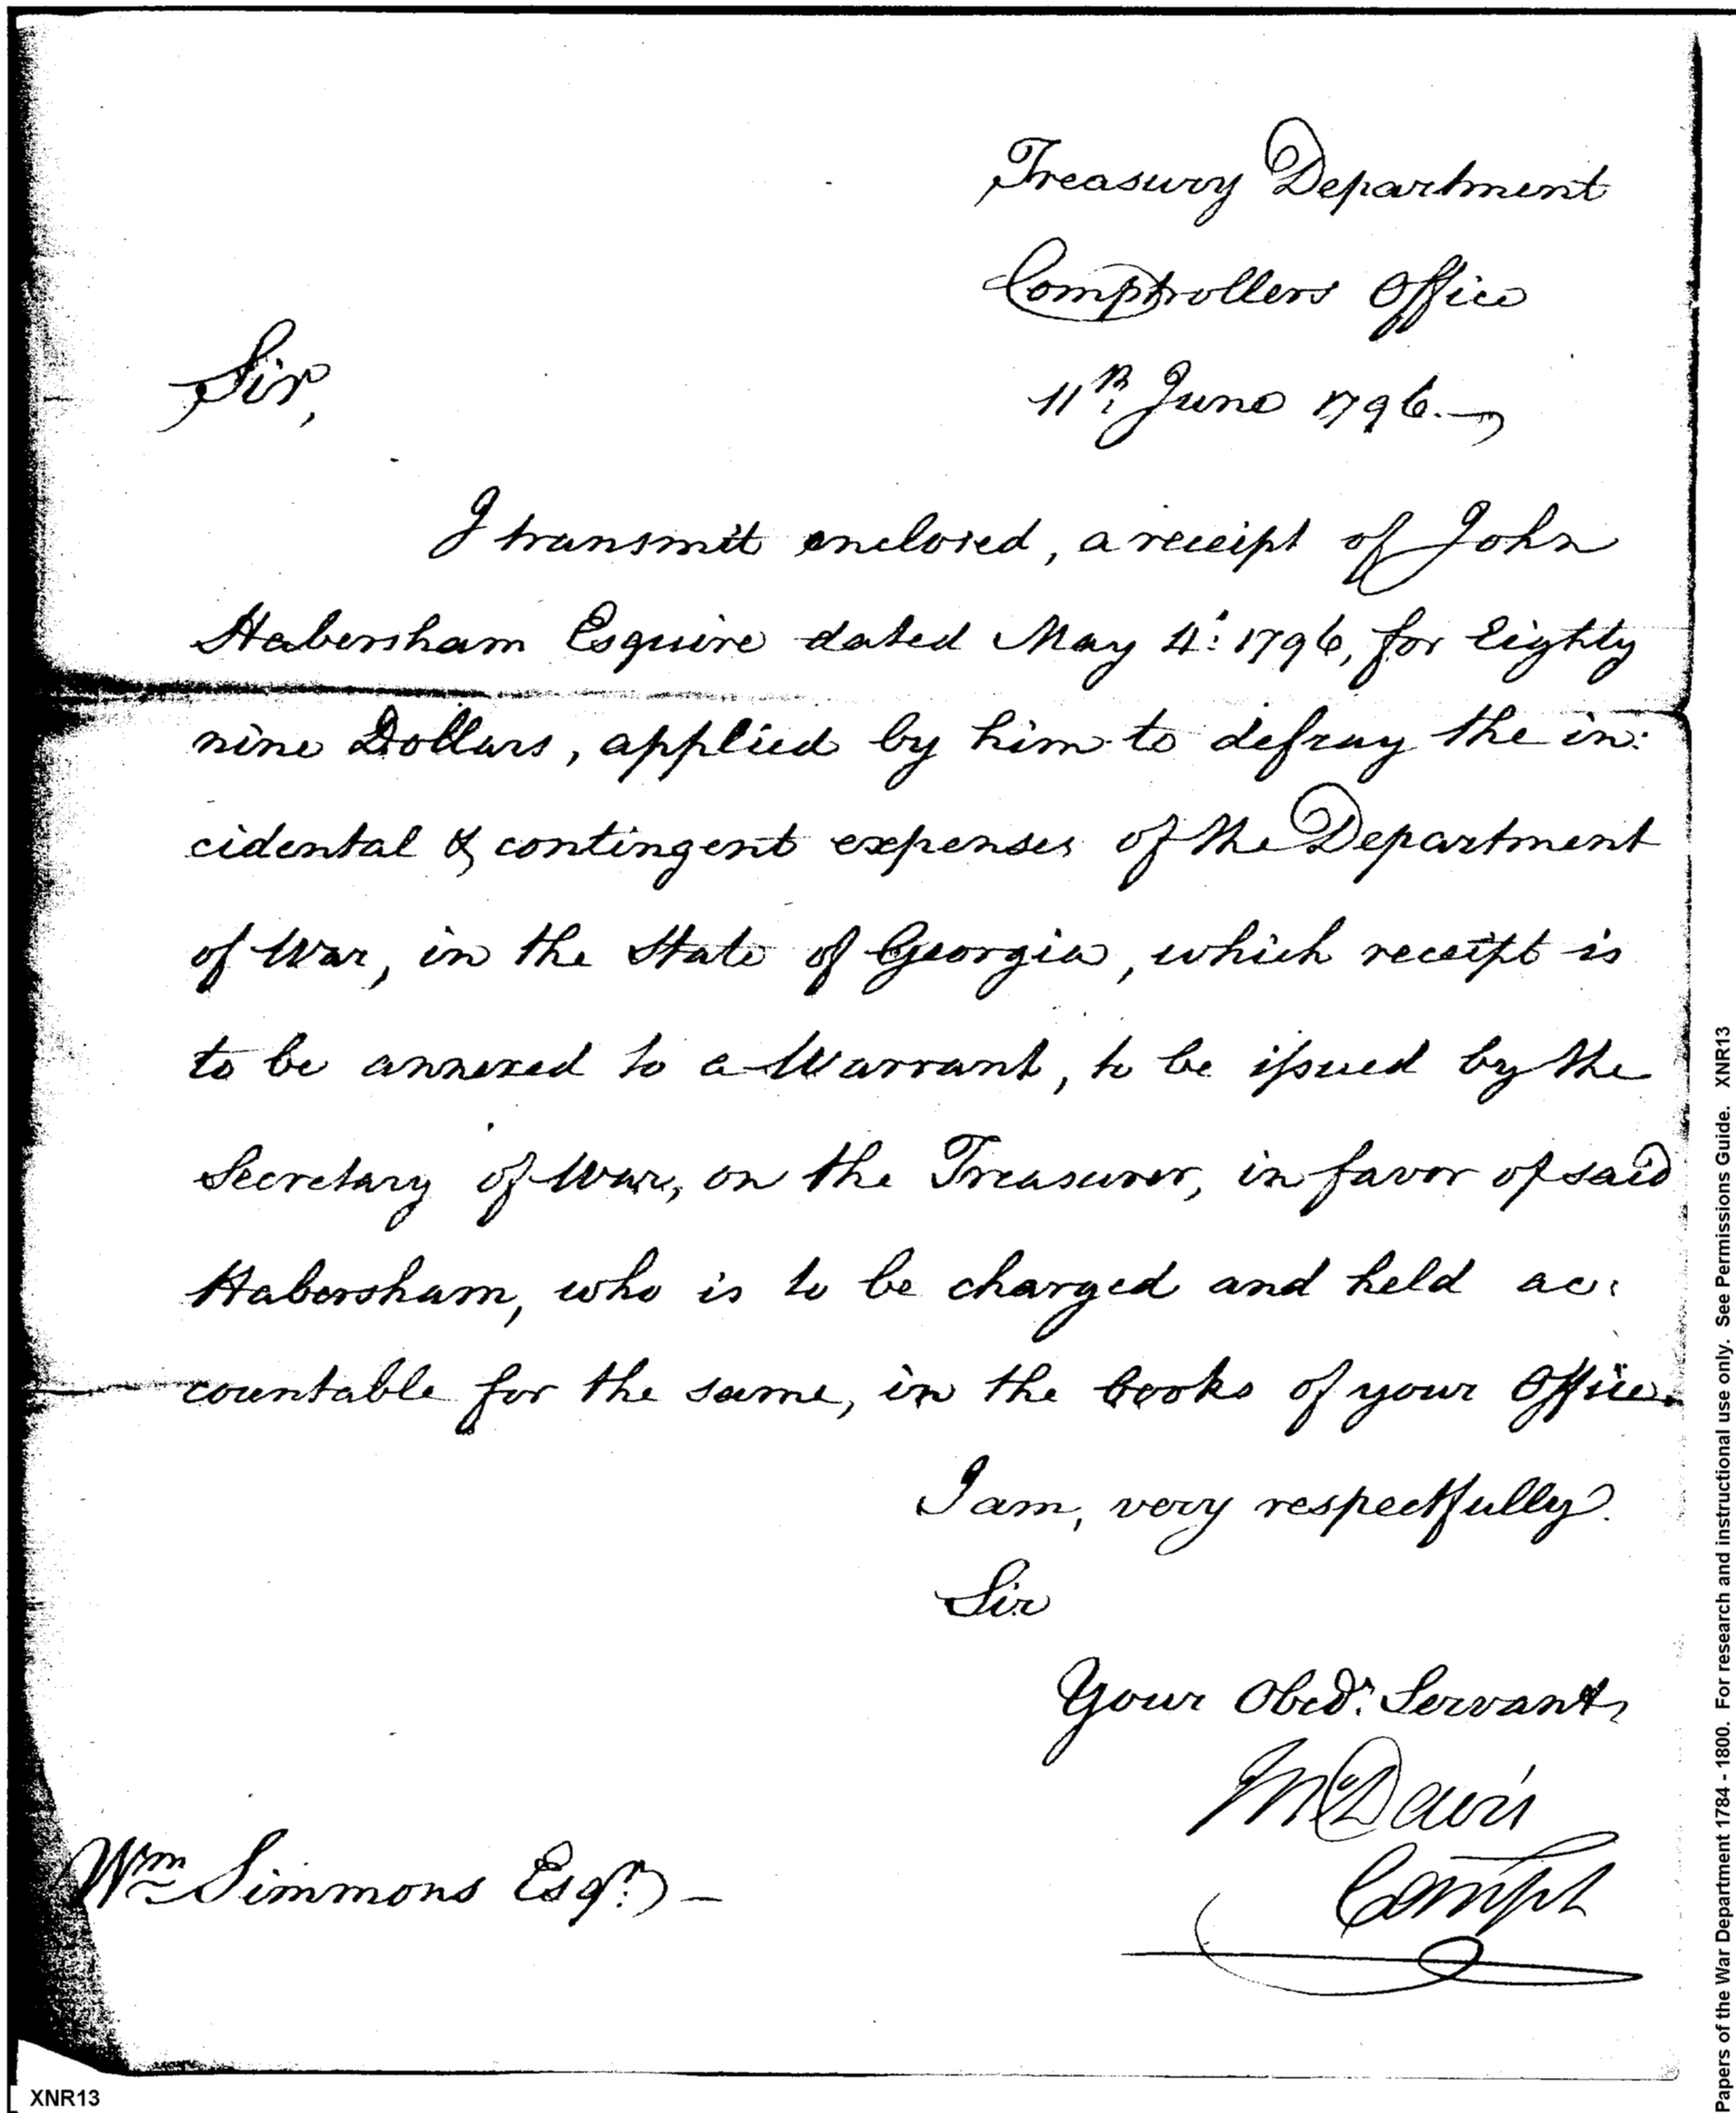 Treasury Department
Comptrollers Office
11th June 1796.
Sir,
I transmit enclosed, a receipt of John
Habersham Esquire dated May 4: 1796, for Eighty
nine Dollars, applied by him to defray the in:
cidental & contingent expenses of the Department
of War, in the State of Georgia, which receipt is
to be annexed to a Warrant, to be issued by the
Secretary of War, on the Treasurer, in favor of said
Habersham, who is to be charged and held ac:
countable for the same, in the books of your Office.
I am, very respectfully.
Sir
Your Obedt. Servant,
Wm Simmons Esqr. -
Compt
XNR13
Papers of the War Department 1784 - 1800. For research and instructional use only. See Permissions Guide. XNR13